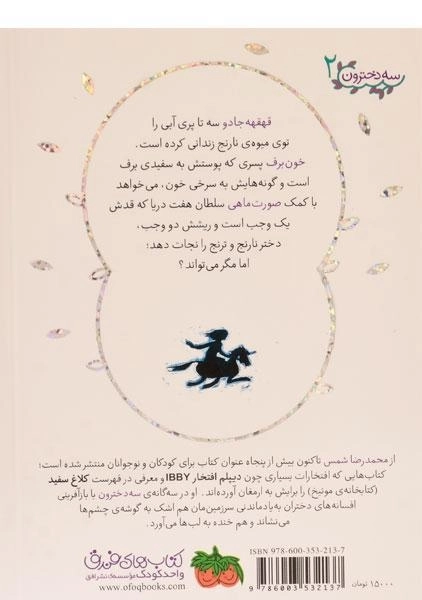 سه دخترون ۲
قهقهه‌جادو سه تا پری آبی را
توی میوه‌ی نارنج زندانی کرده است.
خون‌برف پسری که پوستش به سفیدی برف
است و گونه‌هایش به سرخی خون، می‌خواهد
با کمک صورت‌ماهی سلطان هفت دریا که قدش
یک وجب است و ریشش دو وجب،
دختر نارنج و ترنج را نجات دهد؛
اما مگر می‌تواند؟
از محمدرضا شمس تاکنون بیش از پنجاه عنوان کتاب برای کودکان و نوجوانان منتشر شده است؛
کتاب‌هایی که افتخارات بسیاری چون دیپلم افتخار IBBY و معرفی در فهرست کلاغ سفید
(کتابخانه‌ی مونیخ) را برایش به ارمغان آورده‌اند. او در سه‌گانه‌ی سه‌دخترون با بازآفرینی
افسانه‌های دختران به‌یادماندنی سرزمین‌مان هم اشک به گوشه‌ی چشم‌ها
می‌نشاند و هم خنده به لب‌ها می‌آورد.
کتاب‌های فندق
واحد کودک مؤسسه‌ی نشر افق
www.ofoqbooks.com
ISBN 978-600-353-213-7
9 786003 532137
۱۵۰۰۰ تومان